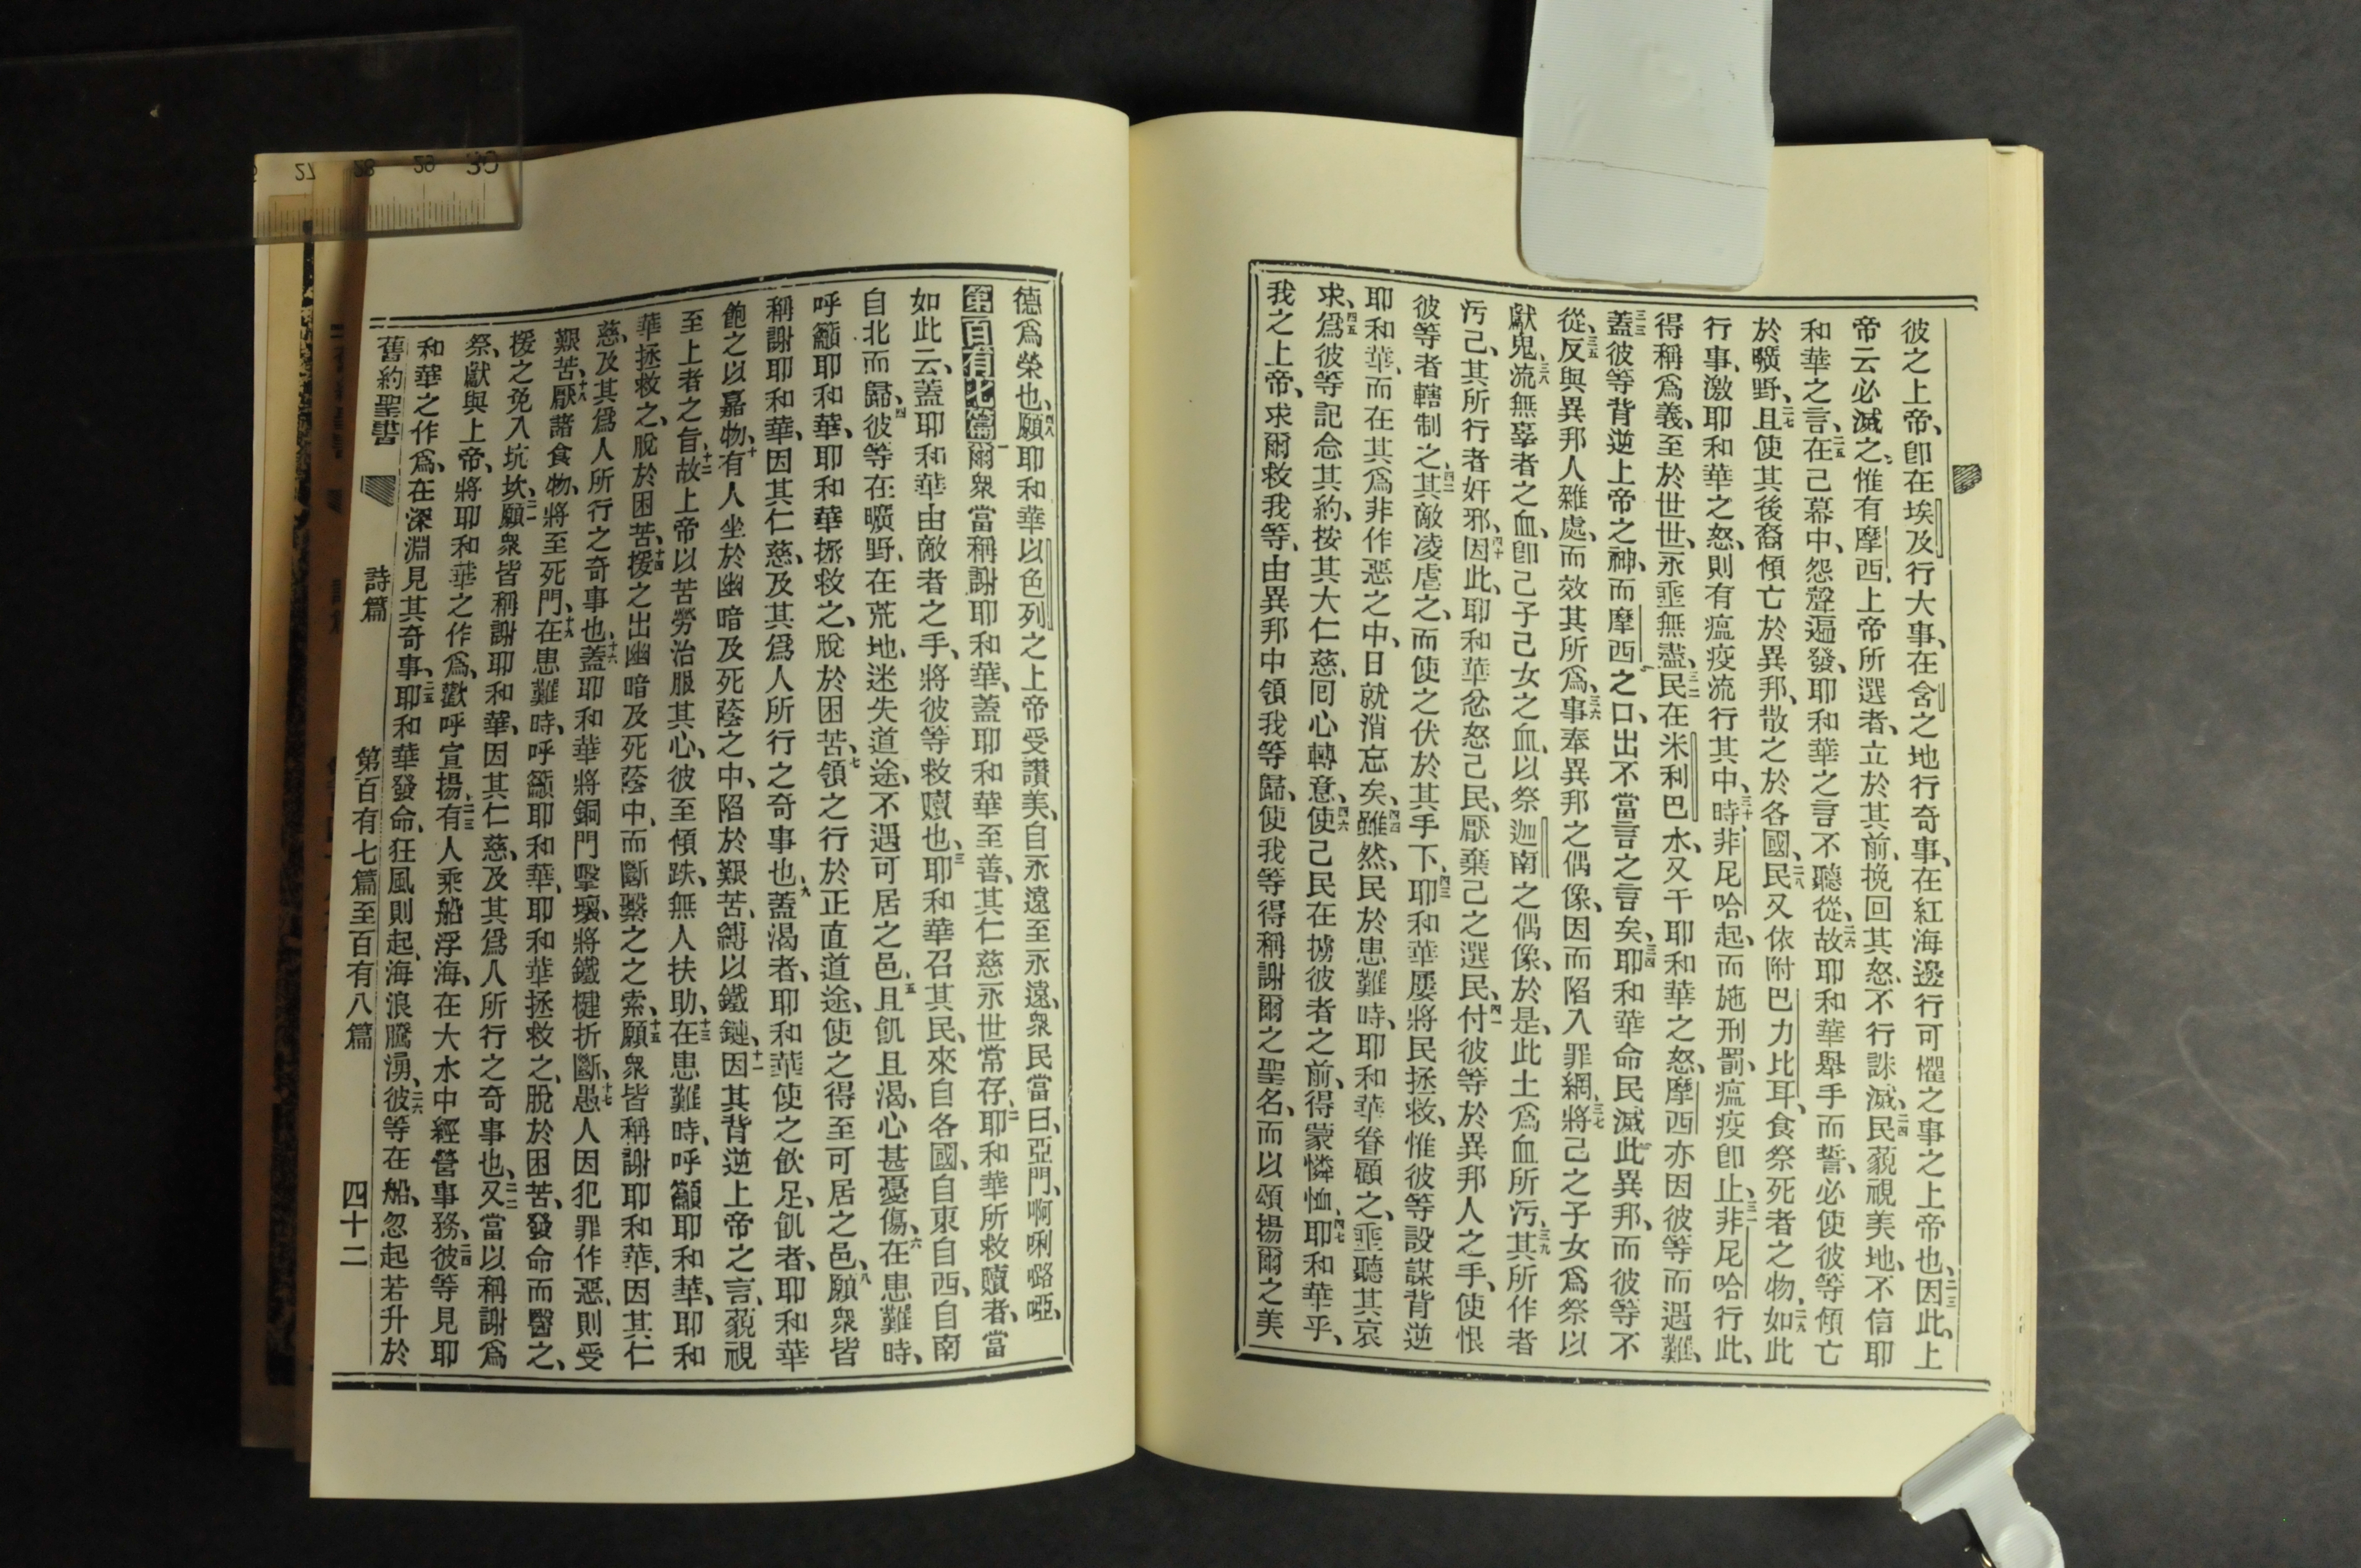 彼之上帝、卽在埃及行大事、在含之地行奇事、在紅海邊行可懼之事之上帝也、二三因此、上
帝云必滅之、惟有摩西、上帝所選者、立於其前、挽回其怒、不行誅滅、二四民藐視美地、不信耶
和華之言、二五在己幕中、怨聲遍發、耶和華之言不聽從、二六故耶和華舉手而誓、必使彼等傾亡
於曠野、二七且使其後裔傾亡於異邦、散之於各國、二八民又依附巴力比耳、食祭死者之物、二九如此
行事、激耶和華之怒、則有瘟疫流行其中、三十時非尼哈起、而施刑罰、瘟疫卽止、三一非尼哈行此、
得稱爲義、至於世世、永垂無盡、三二民在米利巴水、又干耶和華之怒、摩西亦因彼等而遇難、
三三蓋彼等背逆上帝之神、而摩西之口、出不當言之言矣、三四耶和華命民滅此異邦、而彼等不
從、三五反與異邦人雜處、而效其所爲、三六事奉異邦之偶像、因而陷入罪網、三七將己之子女爲祭以
獻鬼、三八流無辜者之血、卽己子己女之血、以祭迦南之偶像、於是、此土爲血所污、三九其所作者
污己、其所行者奸邪、四十因此、耶和華忿怒己民、厭棄己之選民、四一付彼等於異邦人之手、使恨
彼等者轄制之、四二其敵凌虐之、而使之伏於其手下、四三耶和華屢將民拯救、惟彼等設謀背逆
耶和華、而在其爲非作惡之中、日就消忘矣、四四雖然、民於患難時、耶和華眷顧之、垂聽其哀
求、四五爲彼等記念其約、按其大仁慈、囘心轉意、四六使己民在擄彼者之前、得蒙憐恤、四七耶和華乎、
我之上帝、求爾救我等、由異邦中領我等歸、使我等得稱謝爾之聖名、而以頌揚爾之美
德爲榮也、四八願耶和華以色列之上帝受讚美、自永遠至永遠、衆民當曰、亞門、啊唎嚕啞、
第百有七篇一爾衆當稱謝耶和華、蓋耶和華至善、其仁慈永世常存、二耶和華所救贖者、當
如此云、蓋耶和華由敵者之手、將彼等救贖也、三耶和華召其民、來自各國、自東自西、自南
自北而歸、四彼等在曠野、在荒地、迷失道途、不遇可居之邑、五且飢且渴、心甚憂傷、六在患難時、
呼籲耶和華、耶和華拯救之、脫於困苦、七領之行於正直道途、使之得至可居之邑、八願衆皆
稱謝耶和華、因其仁慈、及其爲人所行之奇事也、九蓋渴者、耶和華使之飲足、飢者、耶和華
飽之以嘉物、十有人坐於幽暗及死蔭之中、陷於艱苦、縛以鐵鏈、十一因其背逆上帝之言、藐視
至上者之旨、十二故上帝以苦勞治服其心、彼至傾跌、無人扶助、十三在患難時、呼籲耶和華、耶和
華拯救之、脫於困苦、十四援之出幽暗及死蔭中、而斷繫之之索、十五願衆皆稱謝耶和華、因其仁
慈、及其爲人所行之奇事也、十六蓋耶和華將銅門擊壞、將鐵楗折斷、十七愚人因犯罪作惡、則受
艱苦、十八厭諸食物、將至死門、十九在患難時、呼籲耶和華、耶和華拯救之、脫於困苦、發命而醫之、
援之免入坑坎、二一願衆皆稱謝耶和華、因其仁慈、及其爲人所行之奇事也、二二又當以稱謝爲
祭、獻與上帝、將耶和華之作爲、歡呼宣揚、二三有人乘船浮海、在大水中經營事務、二四彼等見耶
和華之作爲、在深淵見其奇事、二五耶和華發命、狂風則起、海浪騰湧、二六彼等在船、忽起若升於
舊約聖書 詩篇 第百有七篇至百有八篇 四十二
27 28 29 30